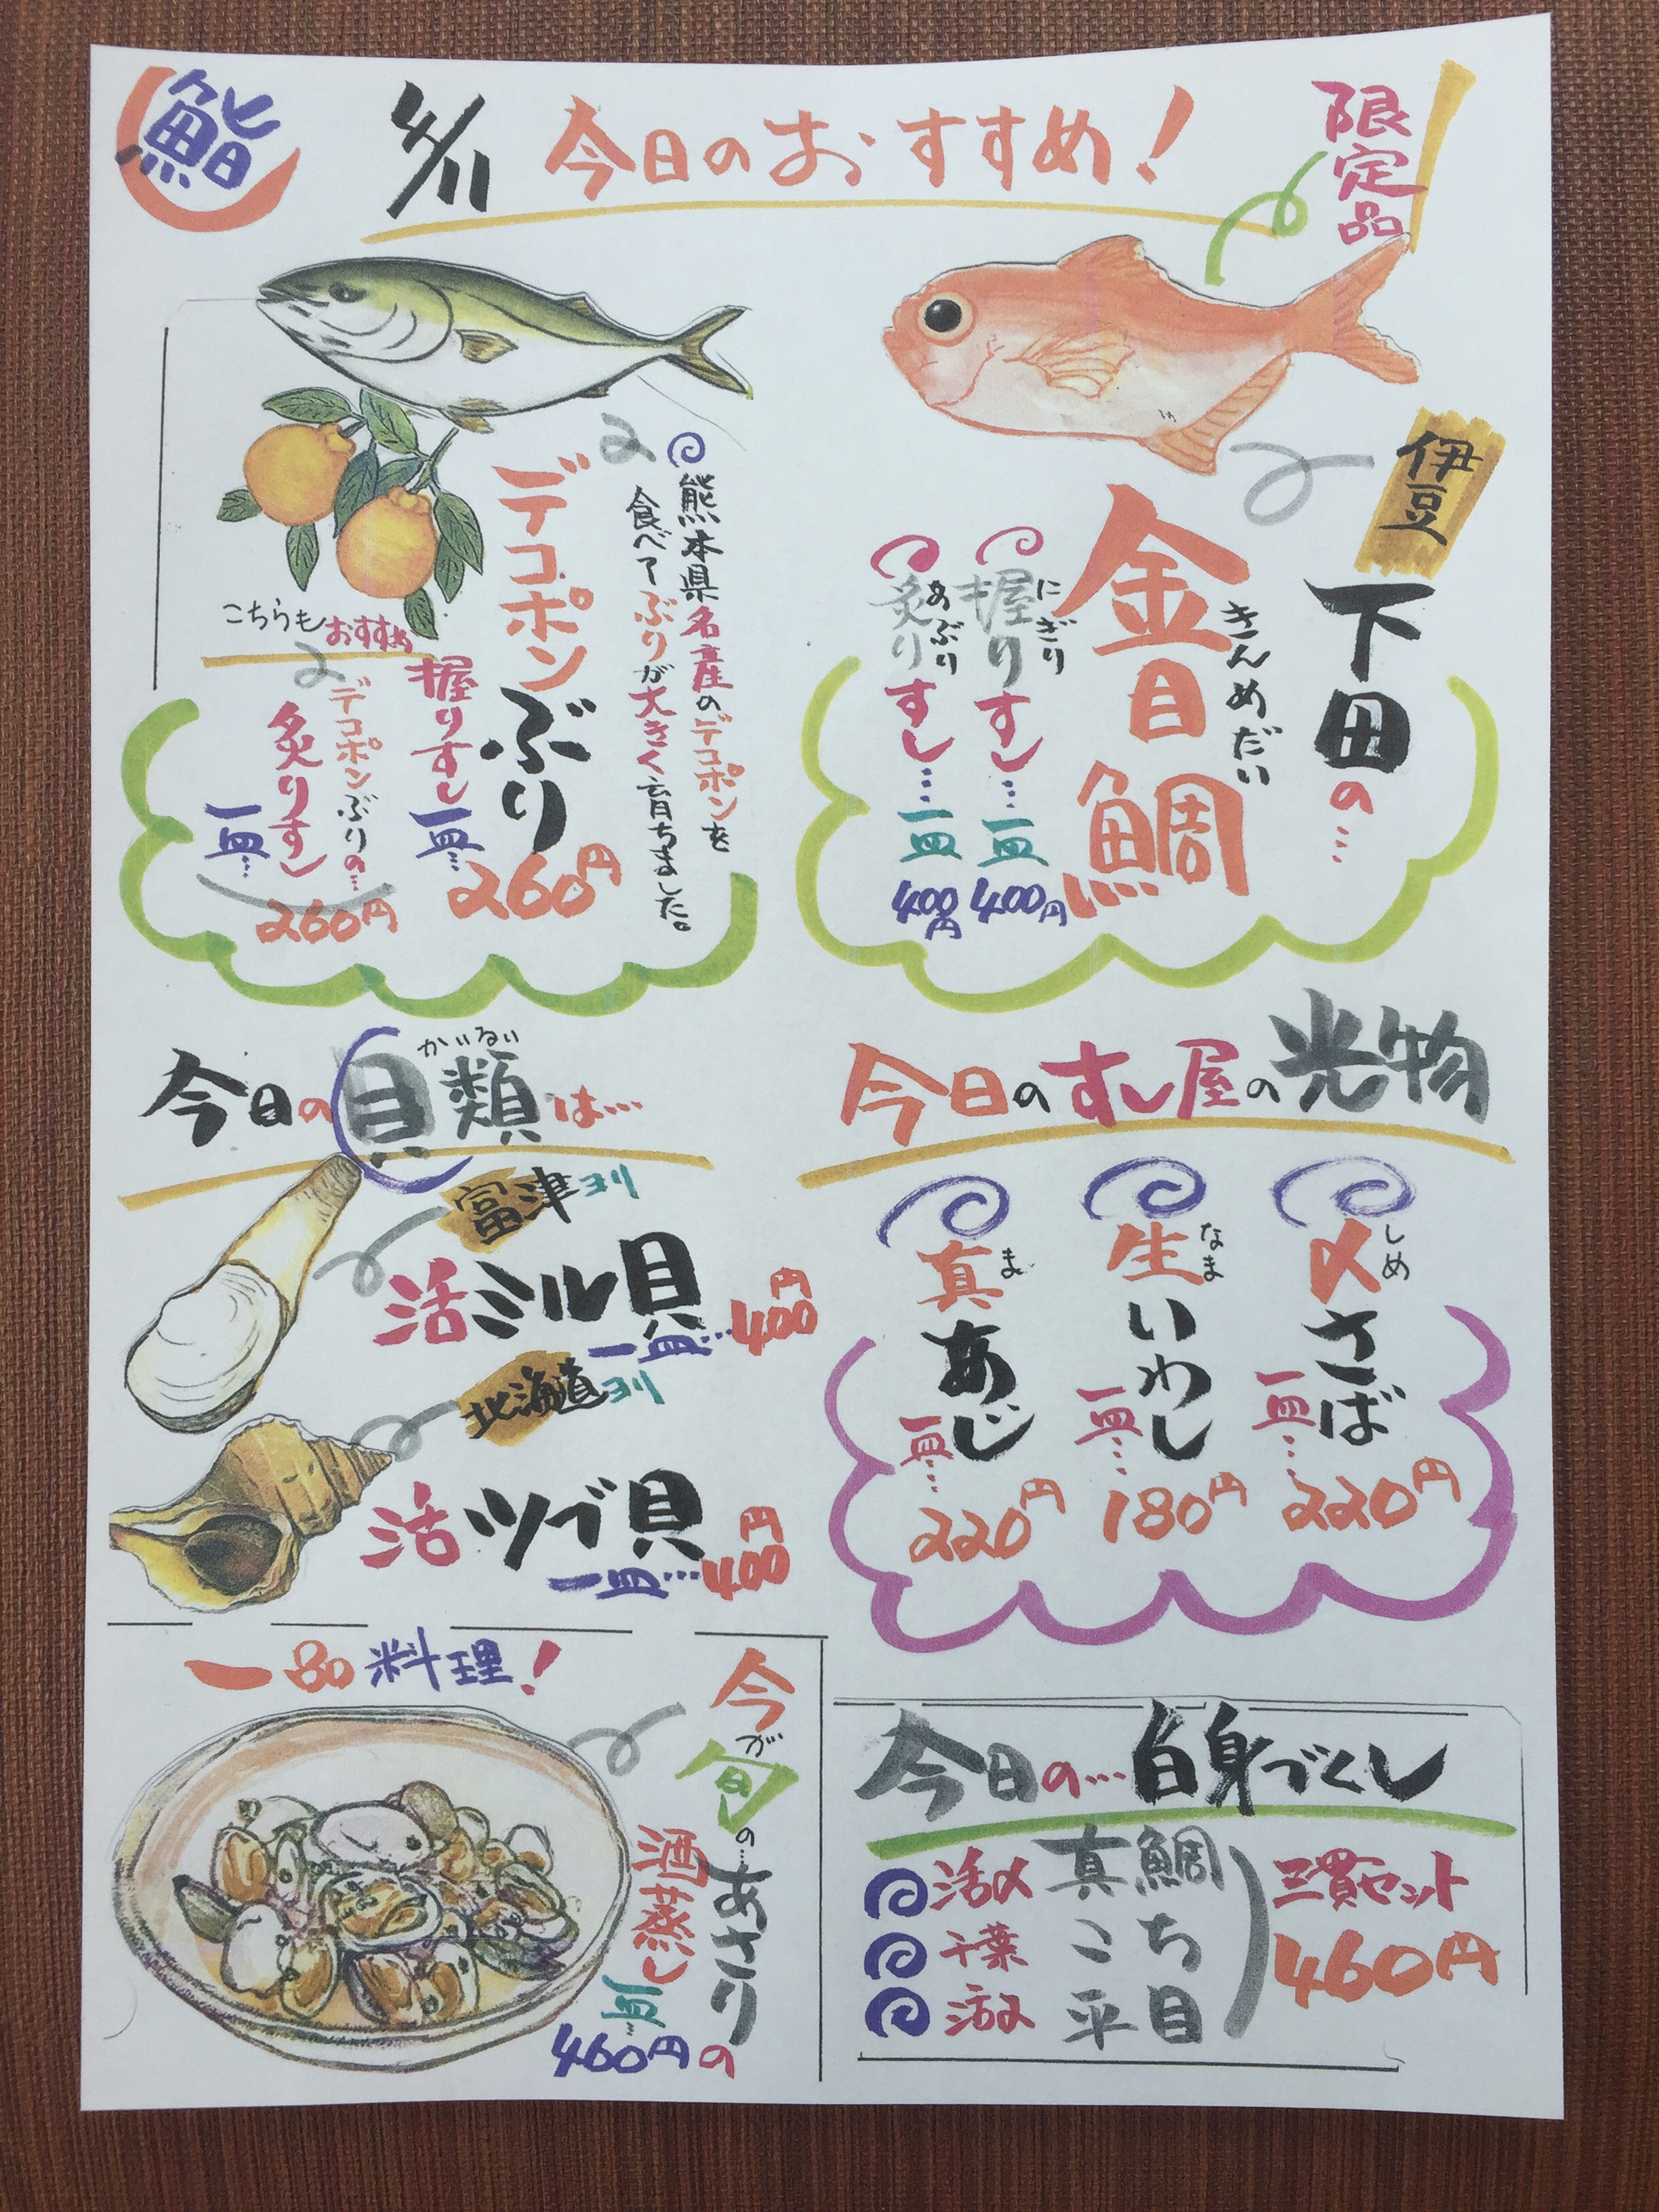 鮨
4/11 今日のおすすめ!
限定品
伊豆
下田の…
きんめだい
金目鯛
にぎり
握りすし…一皿400円
あぶり
炙りすし…一皿400円
熊本県名産のデコポンを
食べてぶりが大きく育ちました。
デコポンぶり
握りすし一皿…260円
こちらもおすすめ
デコポンぶりの…
炙りすし
一皿…260円
今日のすし屋の光物
しめ
〆さば
一皿…220円
なま
生いわし
一皿…180円
ま
真あじ
一皿…220円
かいるい
今日の貝類は…
富津ヨリ
活ミル貝
一皿…400円
北海道ヨリ
活ツブ貝
一皿…400円
一品料理!
今が旬の…あさりの
酒蒸し
一皿…460円
今日の…白身づくし
活〆真鯛
千葉こち
平目
三貫セット
460円